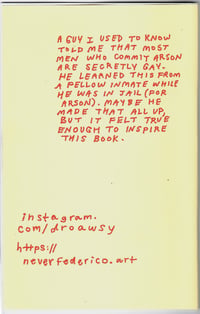 A GUY I USED TO KNOW
TOLD ME THAT MOST
MEN WHO COMMIT ARSON
ARE SECRETLY GAY.
HE LEARNED THIS FROM
A FELLOW INMATE WHILE
HE WAS IN JAIL (FOR
ARSON). MAYBE HE
MADE THAT ALL UP,
BUT IT FELT TRUE
ENOUGH TO INSPIRE
THIS BOOK.
instagram.
com/droawsy
https://
neverfederico.art